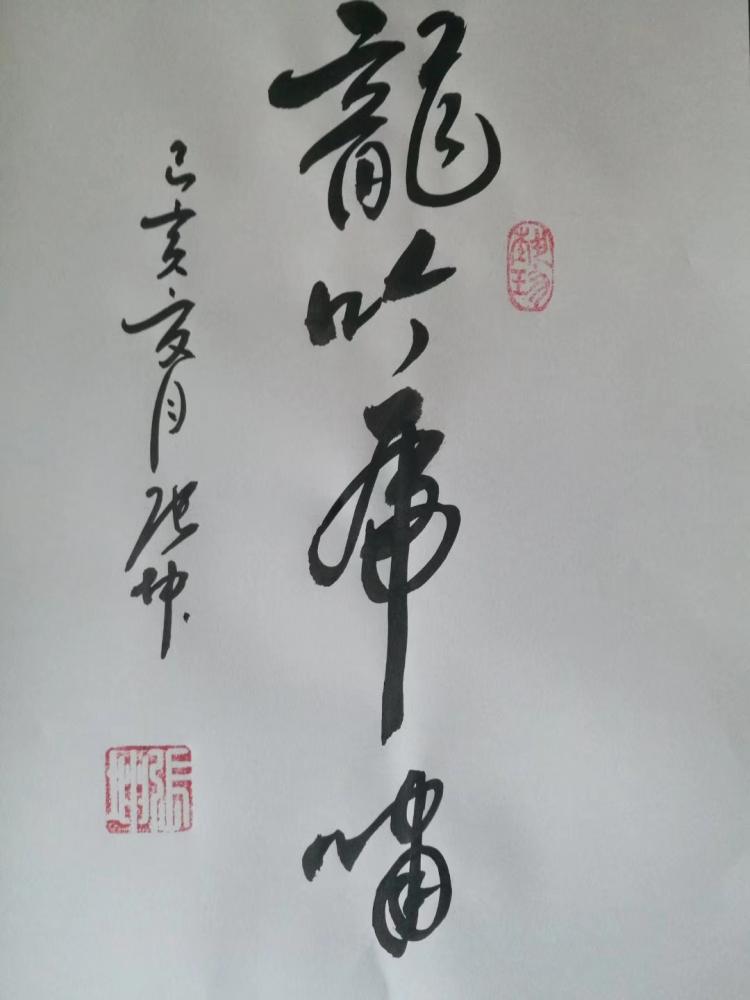 龍吟虎嘯
己亥亥月張坤
張坤